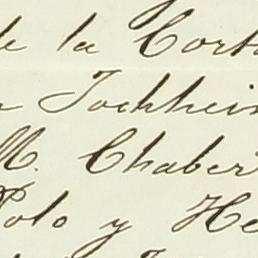 de la Corta
Jochheis
M. Chaber
Polo y He